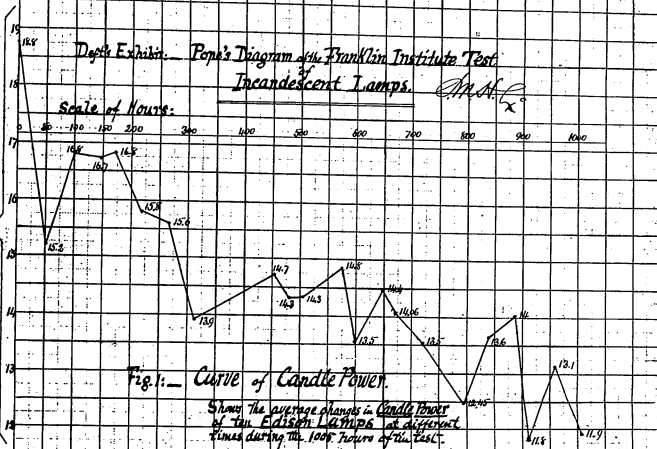 19
18.8
Deft's Exhibit:— Pope's Diagram of the Franklin Institute Test
of
Incandescent Lamps.
18
Scale of Hours:
0 50 100 150 200 300 400 500 600 700 800 900 1000
17
16.8
16.7
16.8
16
15.8
15.6
15.2
15
14.7
14.3
14.3
14.8
14.4
14.06
14
14
13.9
13.5
13.5
13.6
13
13.1
12.45
12
11.8
11.9
Fig. 1:— Curve of Candle Power.
Shows the average changes in Candle Power
of ten Edison Lamps at different
times during the 1005 hours of the test.